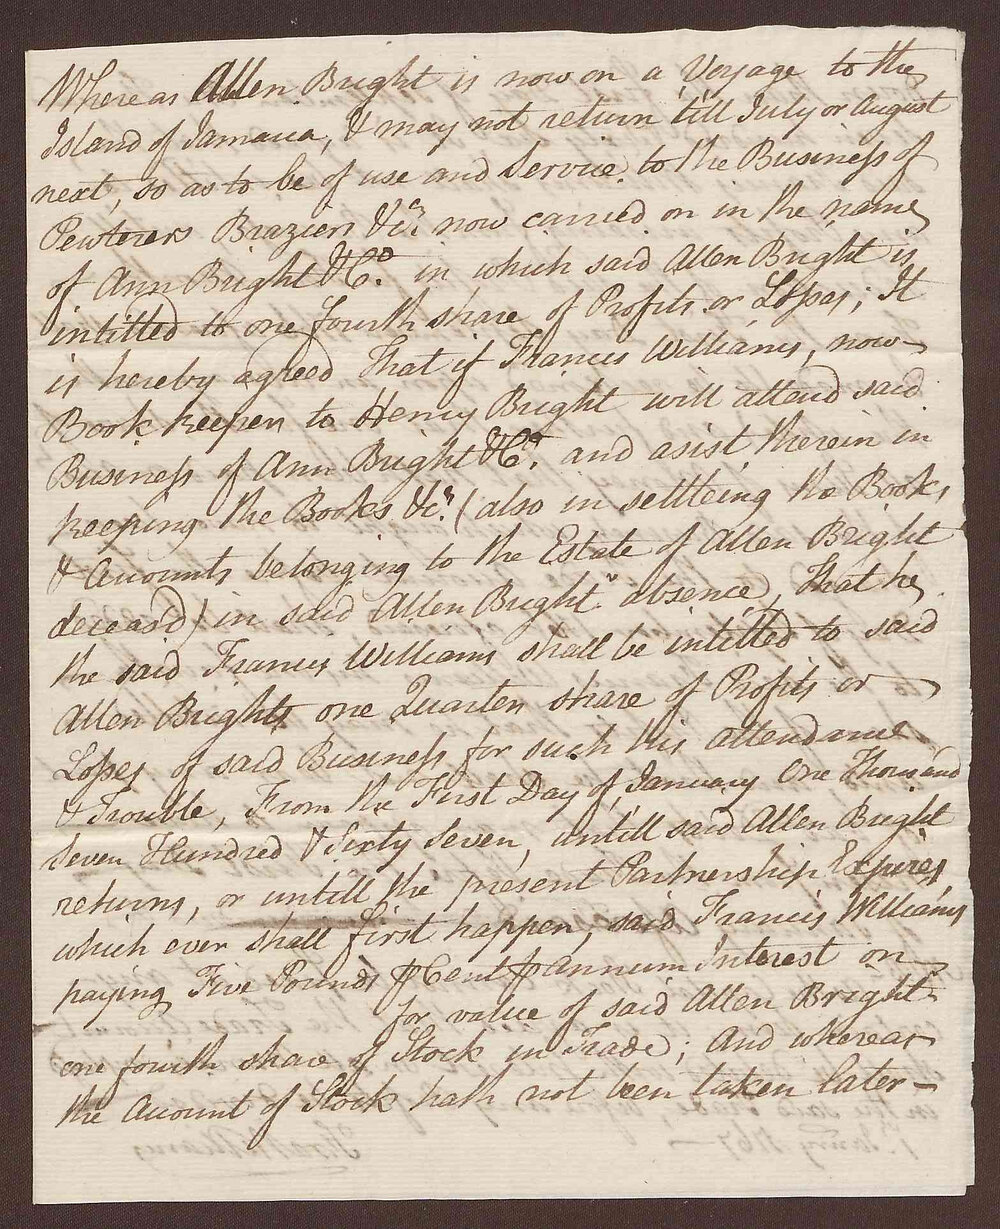 Whereas Allen Bright is now on a Voyage to the
Island of Jamaica, & may not return 'till July or August
next, so as to be of use and Service to the Business of
Pewterers Braziers &ca. now carried on in the name
of Ann Bright & Co. in which said Allen Bright is
intitled to one fourth share of Profits or Losses; It
is hereby agreed That if Francis Williams, now
Book keeper to Henry Bright will attend said
Business of Ann Bright & Co. and asist therein in
keeping the Books &ca. (also in settleing the Books
& Accounts belonging to the Estate of Allen Bright
deceas'd) in said Allen Brights absence, That he
the said Francis Williams shall be intitled to said
Allen Brights one Quarter share of Profits or
Losses of said Business for such his attendance
& Trouble, From the First Day of January One Thousand
Seven Hundred & Sixty Seven, untill said Allen Bright
returns, or untill the present Partnership Expires
which ever shall first happen, said Francis Williams
paying Five Pounds ⅌ Cent ⅌ Annum Interest on
for value of said Allen Brights
one fourth share of Stock in Trade; And whereas
the Account of Stock hath not been taken later